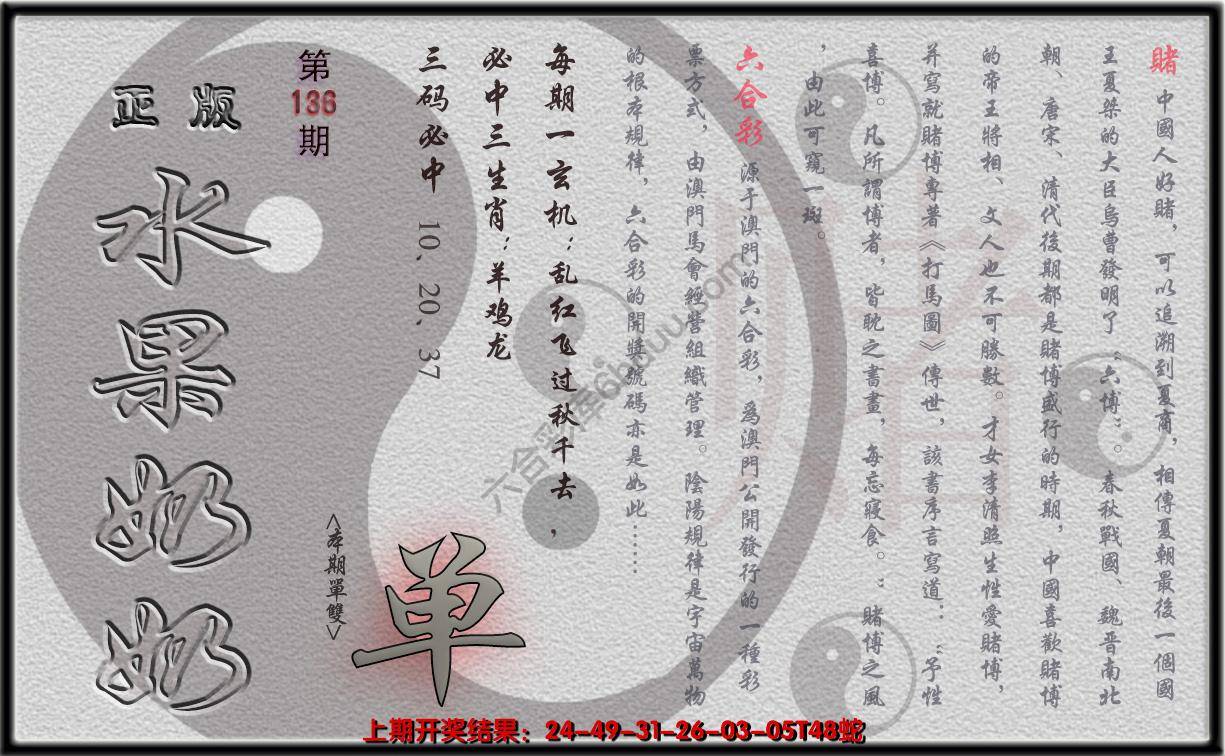 賭 中國人好賭，可以追溯到夏商，相傳夏朝最後一個國
王夏桀的大臣烏曹發明了“六博”。春秋戰國、魏晋南北
朝、唐宋、清代後期都是賭博盛行的時期，中國喜歡賭博
的帝王將相、文人也不可勝數。才女李清照生性愛賭博，
并寫就賭博專著《打馬圖》傳世，該書序言寫道：“予性
喜博。凡所謂博者，皆耽之書畫，每忘寢食。”賭博之風
，由此可窺一斑。
六合彩 源于澳門的六合彩，爲澳門公開發行的一種彩
票方式，由澳門馬會經營組織管理。陰陽規律是宇宙萬物
的根本規律，六合彩的開獎號碼亦是如此……
每期一玄机：乱红飞过秋千去，
必中三生肖：羊鸡龙
三码必中 10、20、37
第136期
正版
水果奶奶
<本期單雙>
单
六合彩库6huuu.com
上期开奖结果：24-49-31-26-03-05T48蛇